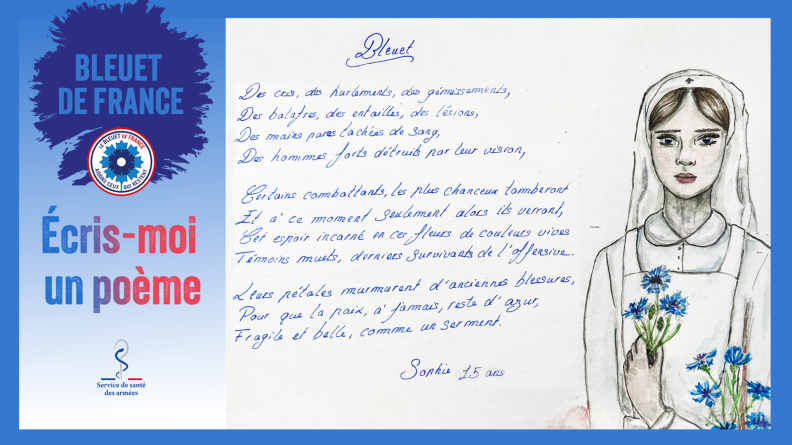 BLEUET
DE FRANCE
LE BLEUET DE FRANCE
AIDONS CEUX QUI RESTENT
Écris-moi
un poème
Service de santé
des armées
Bleuet
Des cris, des hurlements, des gémissements,
Des balafres, des entailles, des lésions,
Des mains pures tachées de sang,
Des hommes forts détruits par leur vision,
Certains combattants, les plus chanceux tomberont
Et à ce moment seulement alors ils verront,
Cet espoir incarné en ces fleurs de couleurs vives
Témoins muets, derniers survivants de l'offensive.
Leurs pétales murmurent d'anciennes blessures,
Pour que la paix, à jamais, reste d'azur,
Fragile et belle, comme un serment.
Sophie 15 ans